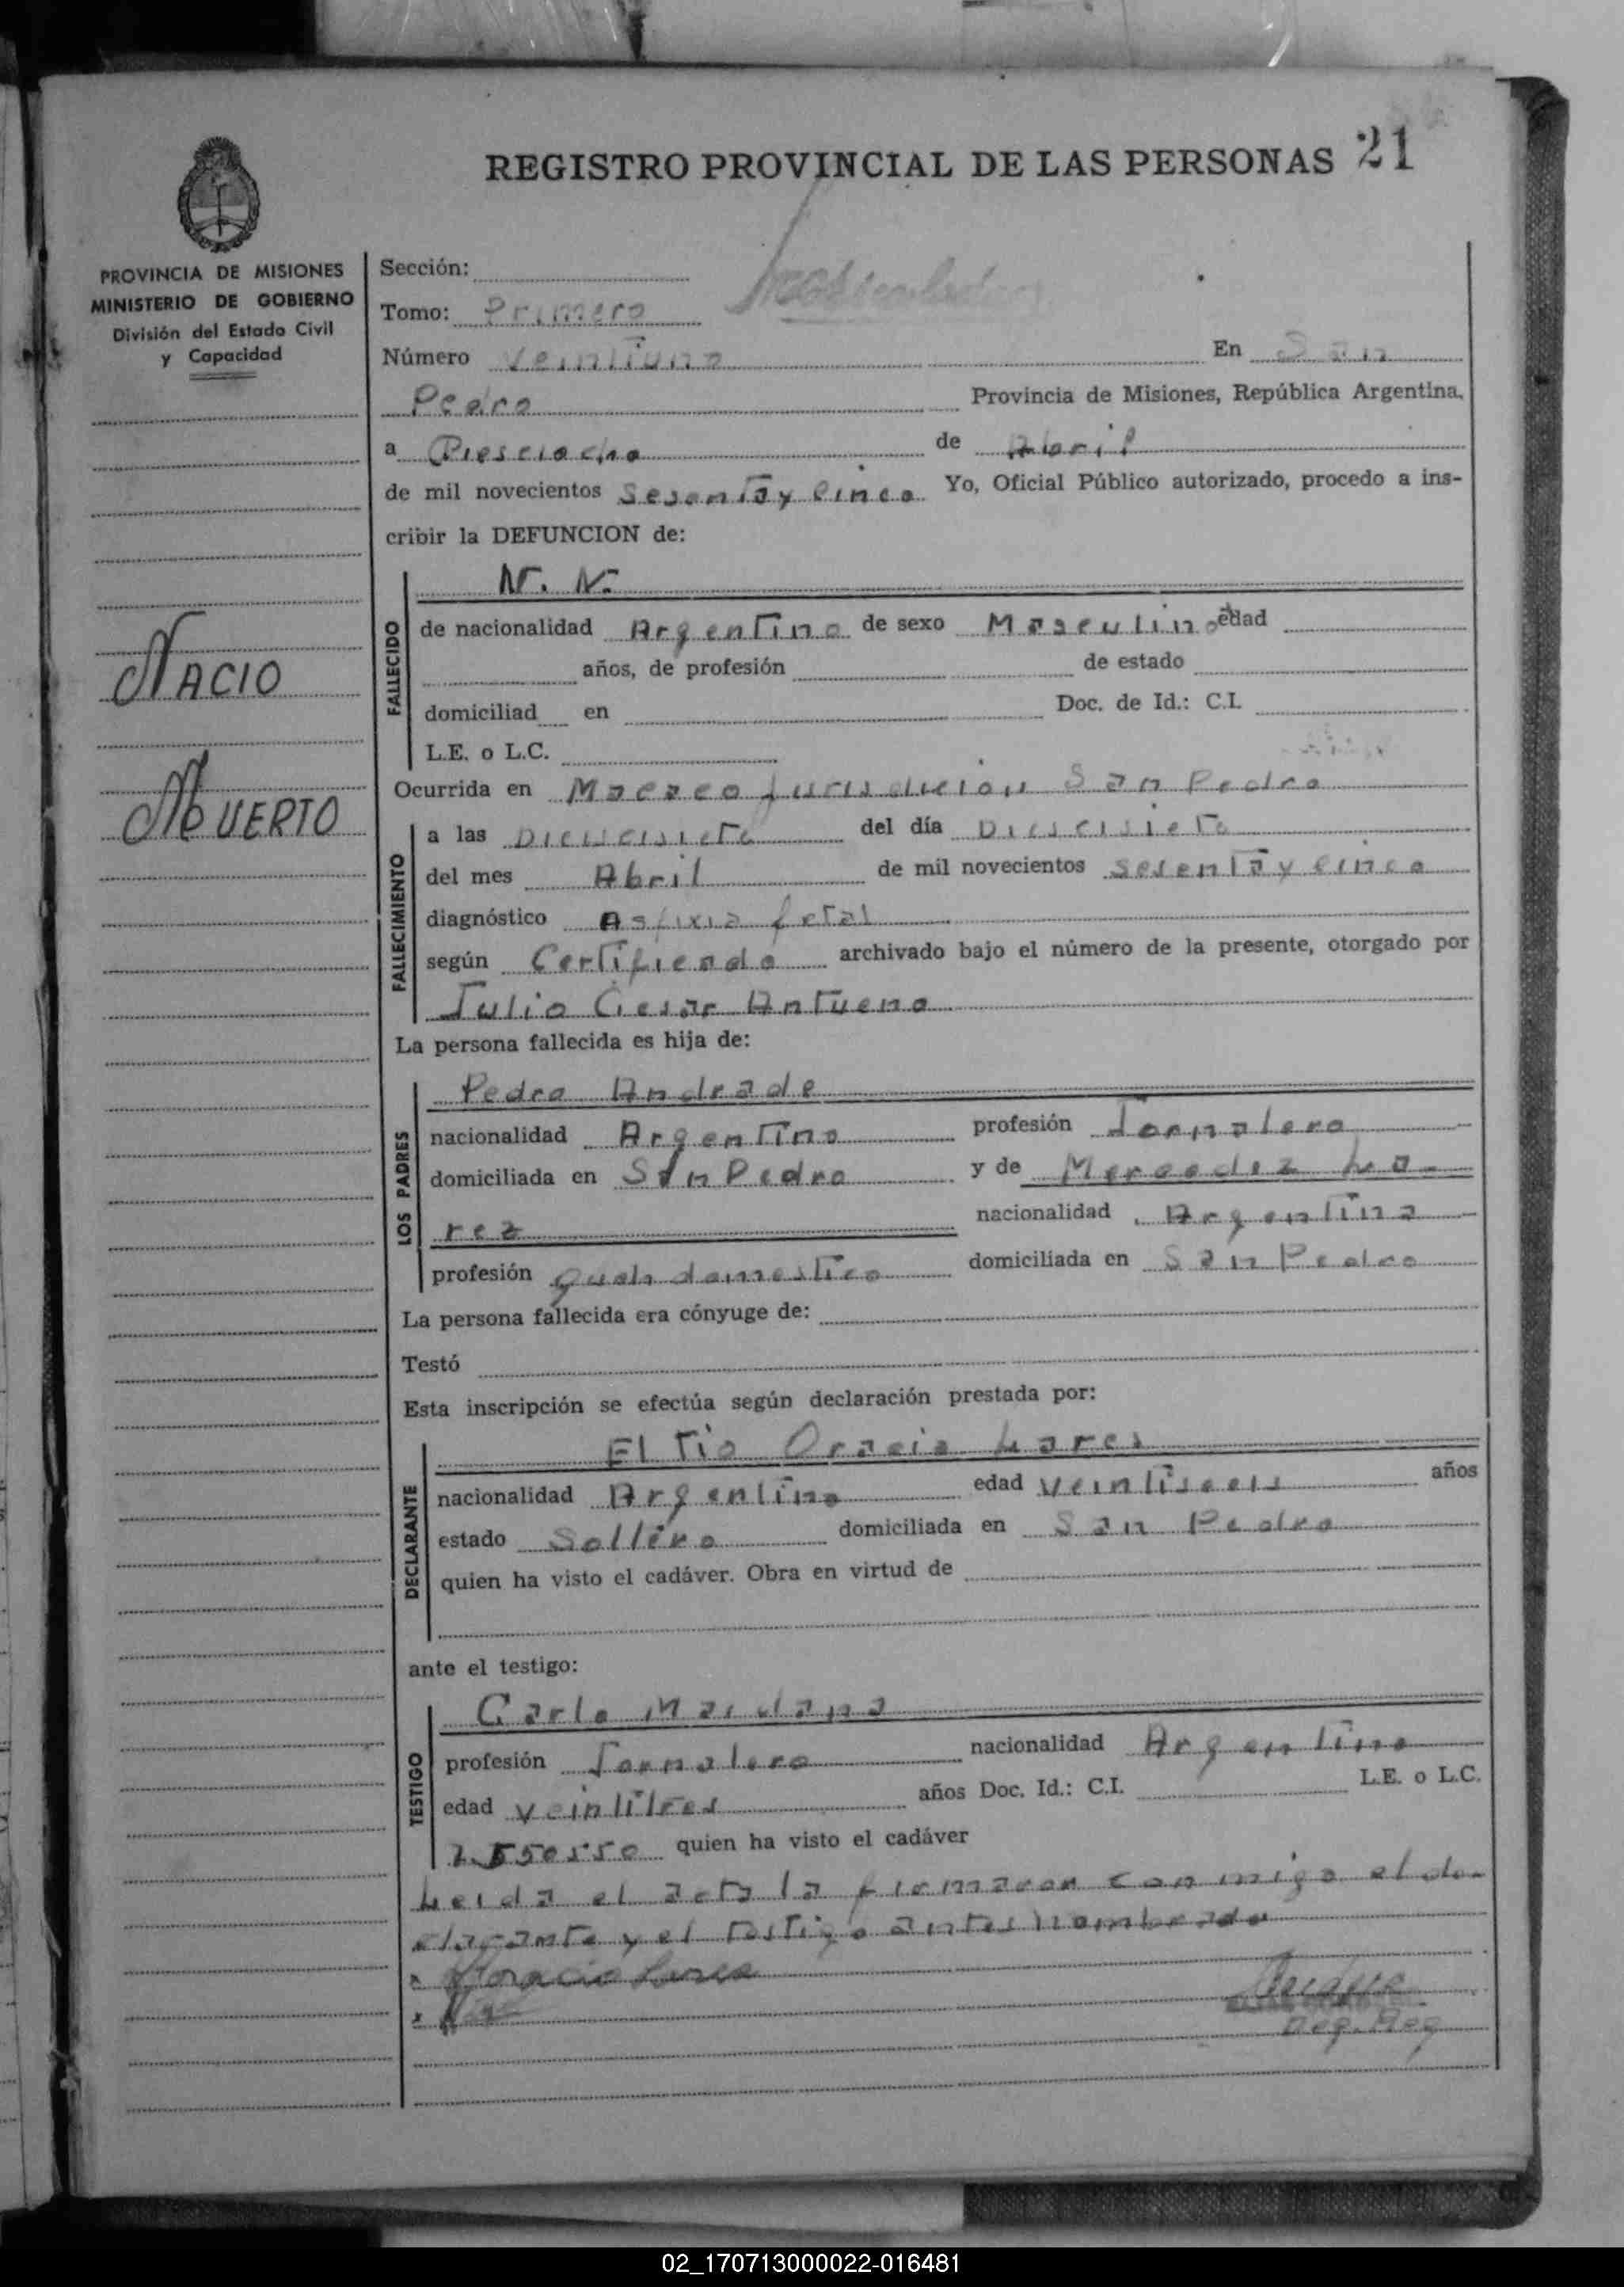 REGISTRO PROVINCIAL DE LAS PERSONAS 21
PROVINCIA DE MISIONES
MINISTERIO DE GOBIERNO
División del Estado Civil
y Capacidad
NACIO
MUERTO
Sección:
Tomo: Primero
Número veintiuno En San
Pedro Provincia de Misiones, República Argentina,
a Diesciocho de Abril
de mil novecientos Sesenta y Cinco Yo, Oficial Público autorizado, procedo a ins-
cribir la DEFUNCION de:
FALLECIDO
N. N.
de nacionalidad Argentino de sexo Masculino edad
años, de profesión de estado
domiciliad en Doc. de Id.: C.I.
L.E. o L.C.
Ocurrida en Macaco San Pedro
FALLECIMIENTO
a las Diescisiete del día Diescisiete
del mes Abril de mil novecientos Sesenta y Cinco
diagnóstico Asfixia fetal
según Certificado archivado bajo el número de la presente, otorgado por
Julio Cesar Antueno
La persona fallecida es hija de:
LOS PADRES
Pedro Andrade
nacionalidad Argentino profesión Jornalero
domiciliada en San Pedro y de Mercedez La-
rez nacionalidad Argentina
profesión domestico domiciliada en San Pedro
La persona fallecida era cónyuge de:
Testó
Esta inscripción se efectúa según declaración prestada por:
DECLARANTE
El Tio Oracio Lares
nacionalidad Argentino edad veintiseis años
estado Soltero domiciliada en San Pedro
quien ha visto el cadáver. Obra en virtud de
ante el testigo:
TESTIGO
Carlo Maidana
profesión Jornalero nacionalidad Argentino
edad veintitres años Doc. Id.: C.I. L.E. o L.C.
quien ha visto el cadáver
Leida el acta la firmaron conmigo el de-
clarante y el testigo antes nombrado
Horacio Lares
02_170713000022-016481